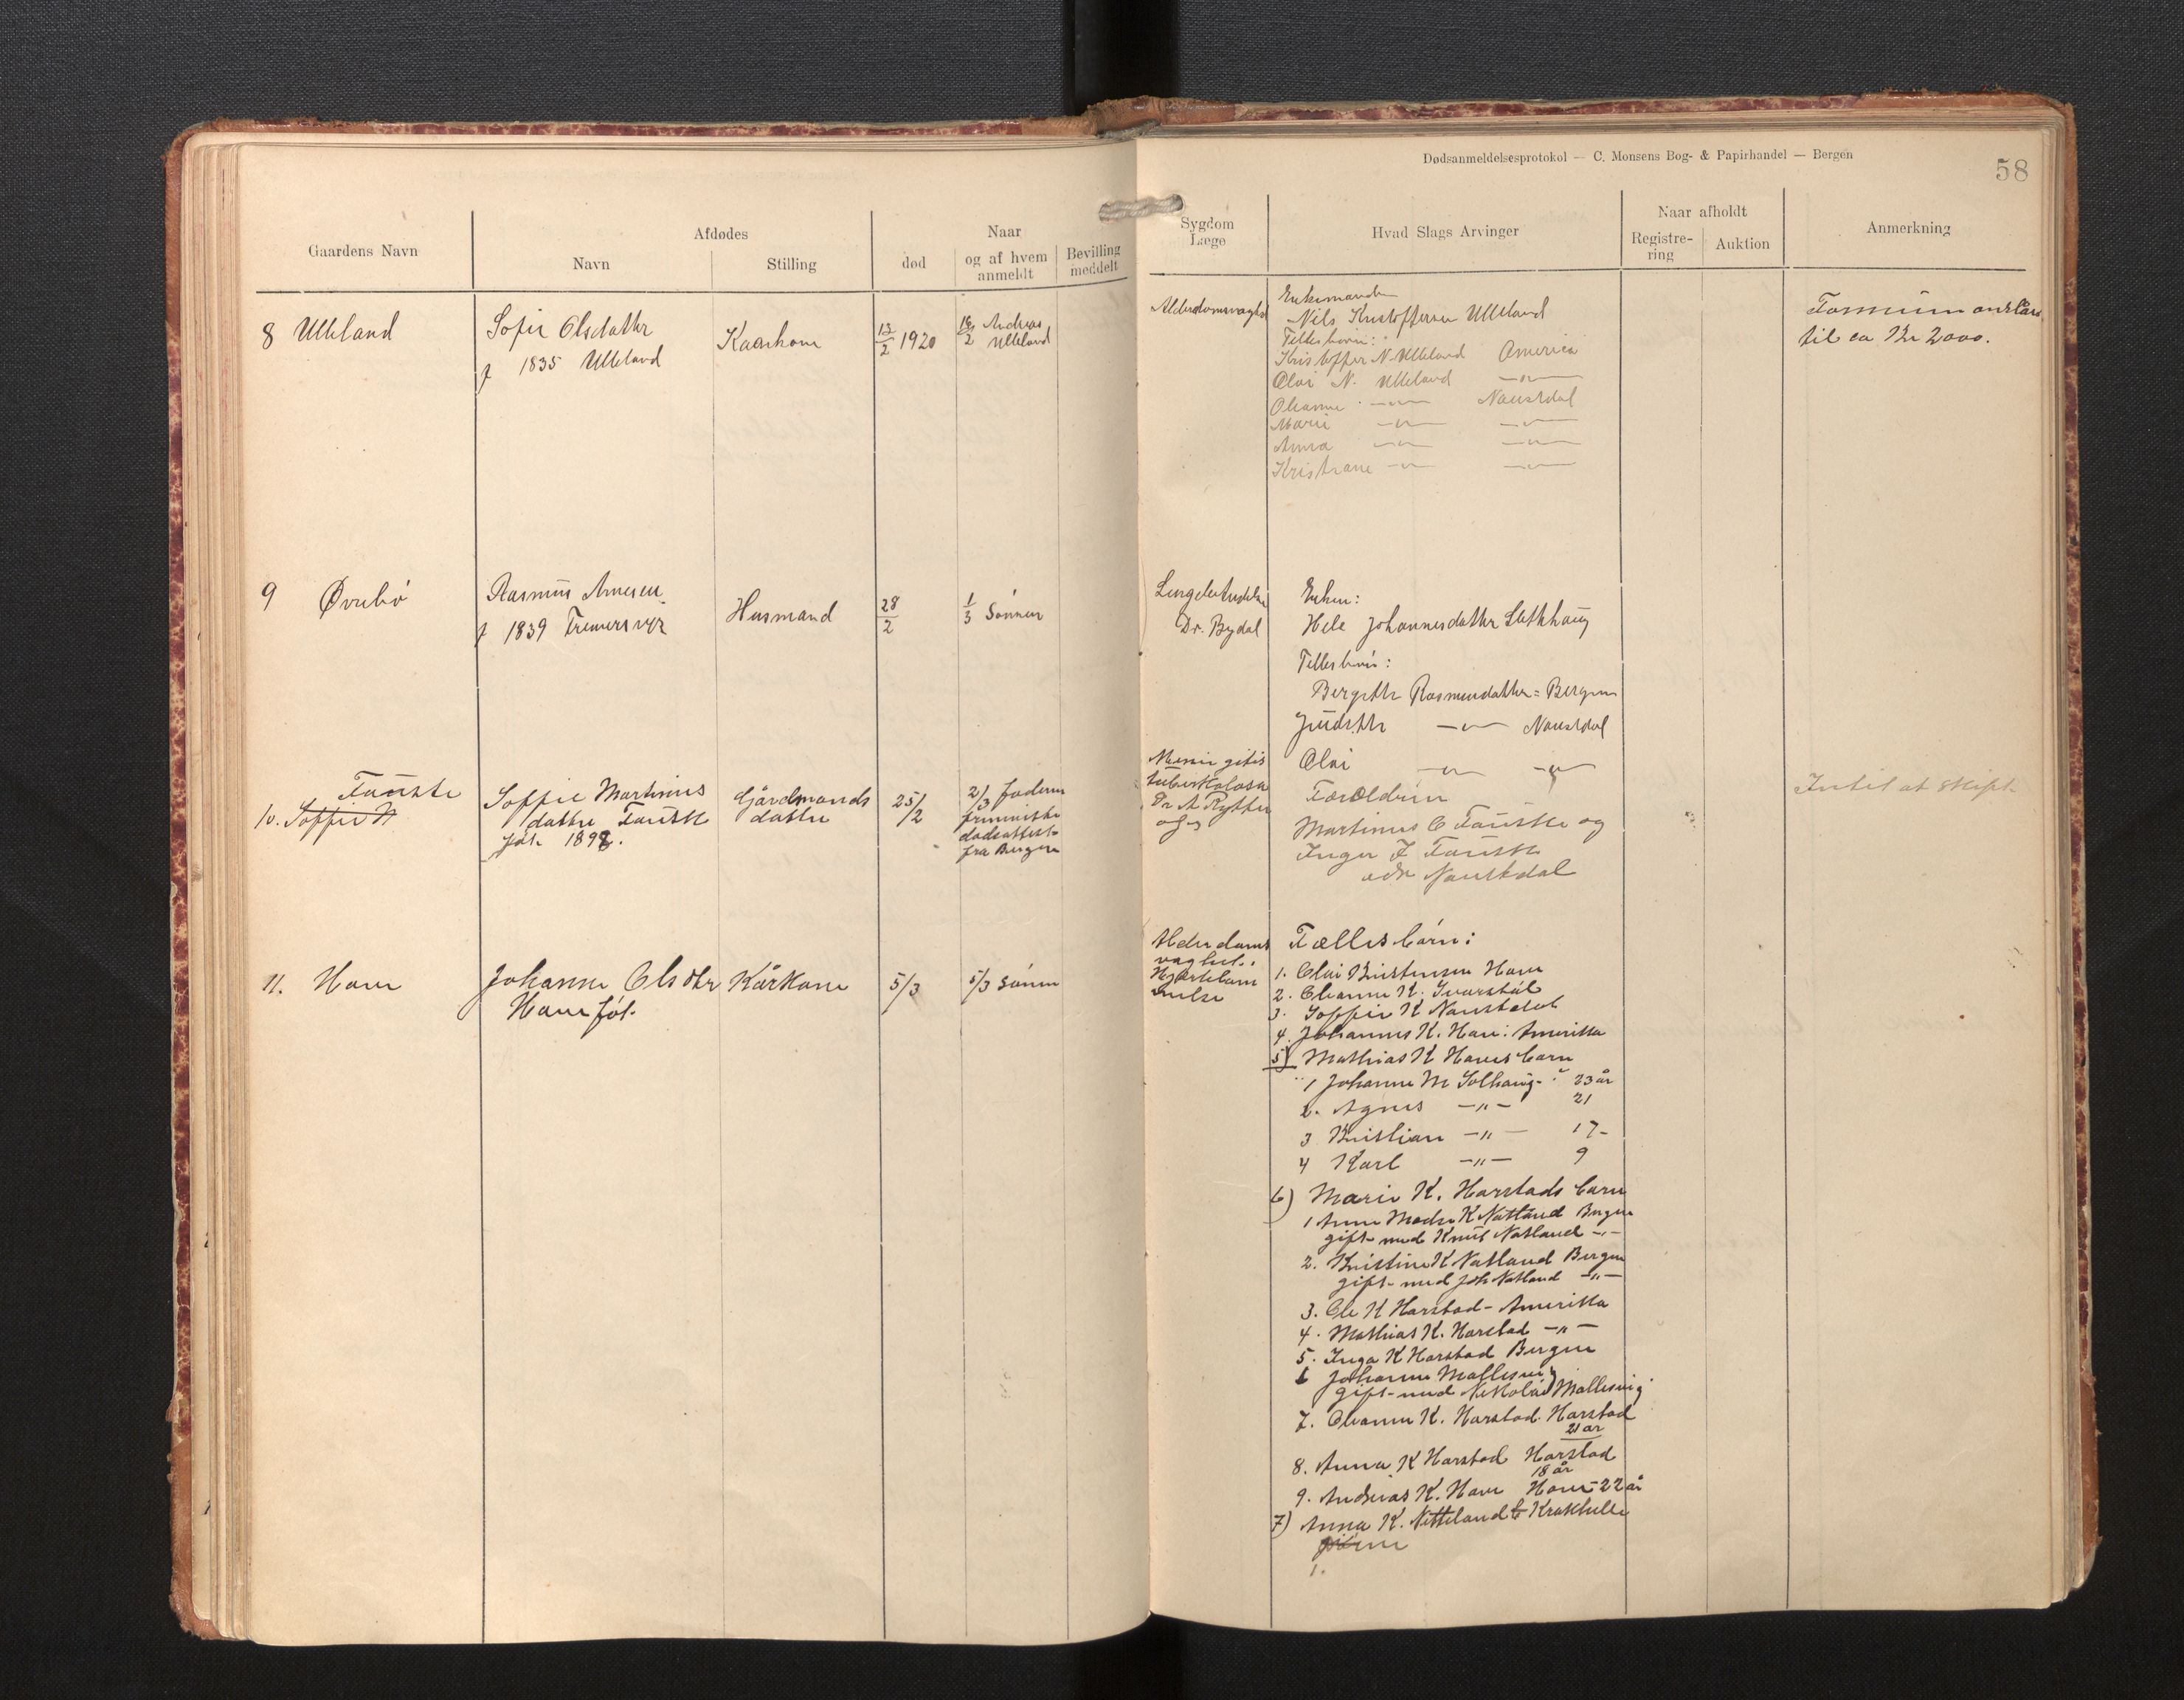 Dødsanmeldelsesprotokol — C. Monsens Bog- & Papirhandel — Bergen
58
Gaardens Navn
Afdødes
Navn
Stilling
Naar
død
og af hvem anmeldt
Bevilling meddelt
Sygdom
Læge
Hvad Slags Arvinger
Naar afholdt
Registre-
ring
Auktion
Anmerkning
8 Ulleland
Sofie Olsdatter
f 1835 Ulleland
Kaarkone
13/2 1920
16/2 Andreas
Ulleland
Alderdomsvaghed
Enkemanden
Nils Kristoffersen Ulleland
Fællesbørn:
Kristoffer N. Ulleland America
Olai N. Ulleland —"—
Oleanne —"— Naustdal
Marie —"— —"—
Anna —"— —"—
Kristiane —"— —"—
Formuen anslåes
til ca Kr 2000.
9 Øvrebø
Rasmus Arnesen
f 1839
Husmand
28/2
1/3 Sønnen
Dr. Bydal
Enken:
Johannesdatter
Fællesbørn:
Bergitte Rasmusdatter = Bergen
Judithe —"— Naustdal
Olai —"— —"—
Fauske
10. Soffie N
Soffie Martinus
datter Fauske
føt 1898.
Gårdmands
datter
25/2
2/3 faderen
dødsattest
fra Bergen
Meningitis
tuberkolosa
Dr A Rytter
Forældrene
Martinus O Fauske og
Inger J Fauske
adr Naustdal
Intet at skifte
11. Hove
Johanne Olsdtr
Hove føt.
Kårkone
5/3
5/3 sønnen
Alderdoms
vaghet.
Hjertelam
melse
Fællesbørn:
1. Olai Kristensen Hove
2. Oleanne K.
3. Soffie K Naustdal
4. Johannes K. Hove: Amerikka
5) Mathias K Hoves børn
1 Johanne M Solhaug - 23 år
2. Agnes —"— 21
3 Kristian —"— 17-
4 Karl —"— 9
6) Marie K. Harstads børn
1 Anne K Natland Bergen
gift med Knut Natland —"—
2. Kristine K Natland Bergen
gift med Joh Natland —"—
3. Ole K Harstad - Amerikka
4. Mathias K. Harstad —"—
5. Inga K Harstad Bergen
6 Johanne Mallesvig
gift med Nikolai Mallesvig
7. Oleanne K. Harstad. Harstad
21 år
8. Anna K Harstad Harstad
18 år
9. Andreas K. Hove Hove 22 år
7) Anna K.
1.